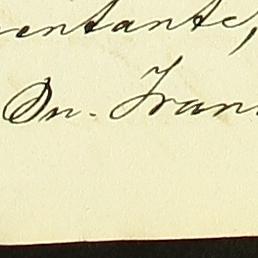 entante,
Dn. Fran